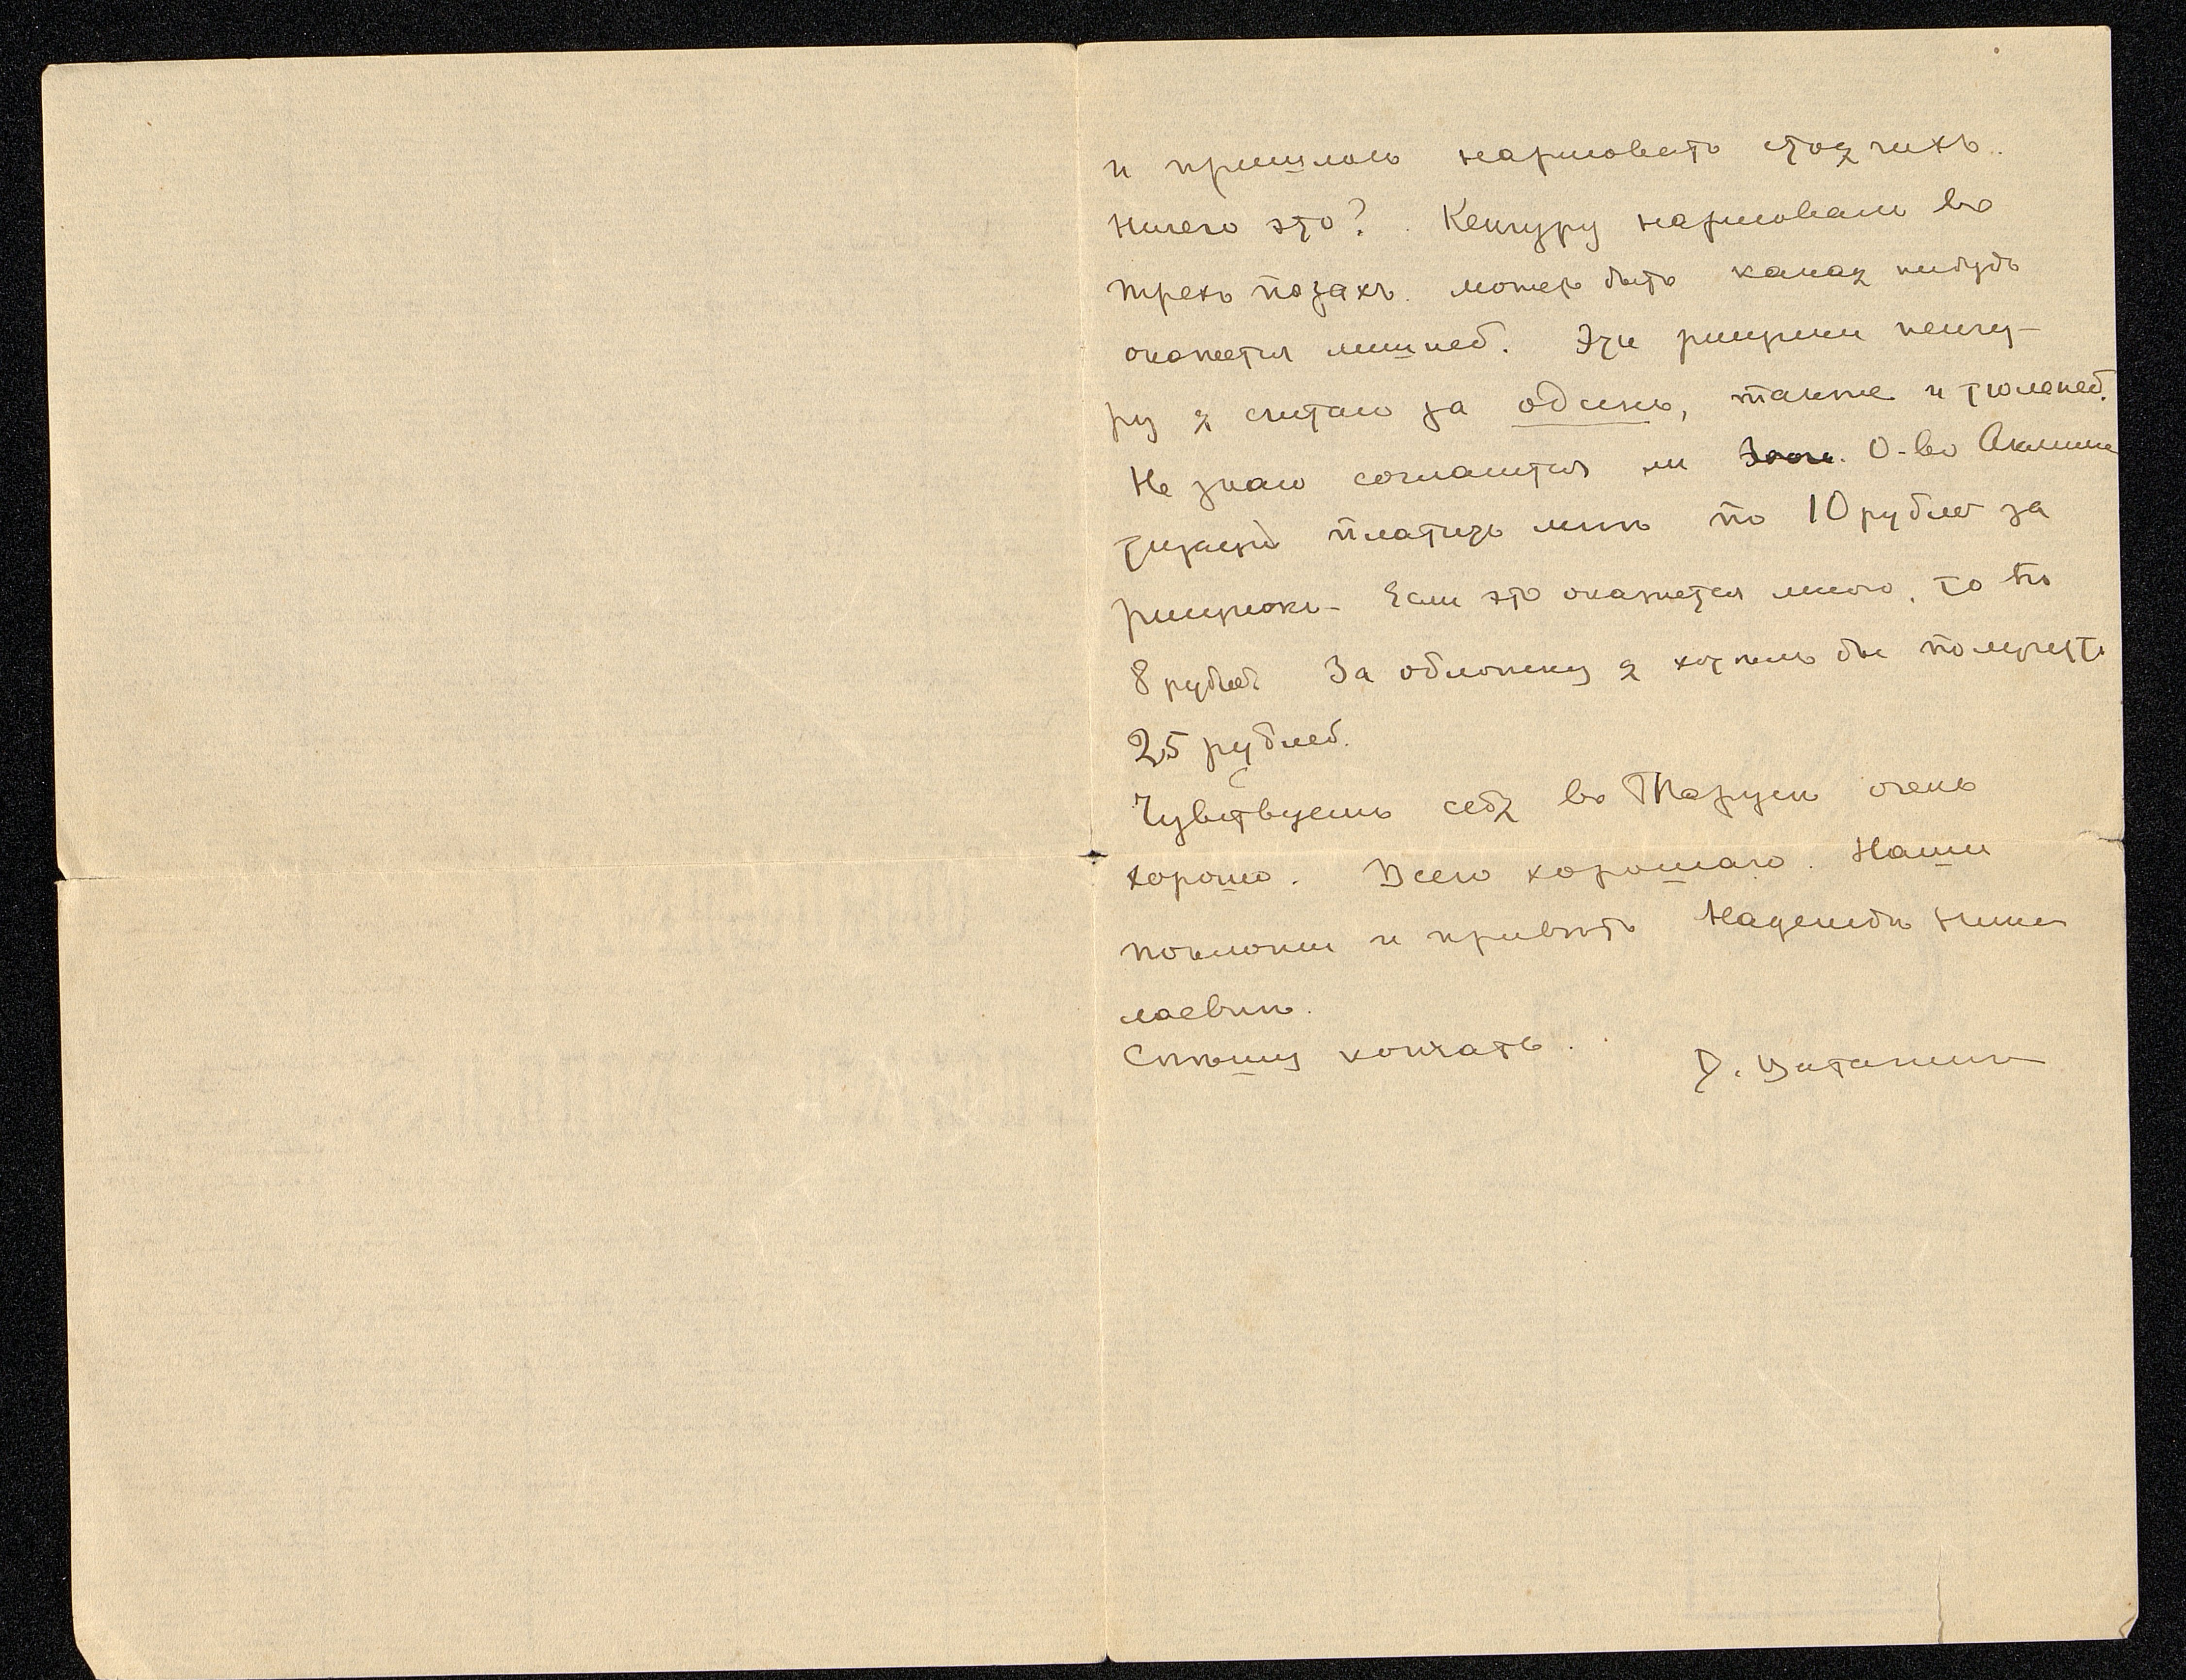 и пришлось нарисовать стоячихъ.
Ничего это? Кенгуру нарисовалъ въ
трехъ позахъ. можетъ быть какая нибудь
окажется лишней. Эти рисунки кенгу-
ру я считаю за одинъ, также и тюленей.
Не знаю согласится ли Зоол. О-во Аклима
тизаціи платить мнѣ по 10 рублей за
рисунокъ. Если это окажется много, то по
8 рублей За обложку я хотѣлъ бы получить
25 рублей.
Чувствуешь себя въ Тарусѣ очень
хорошо. Всего хорошаго. Наши
поклоны и привѣтъ Надеждѣ Нико
лаевнѣ.
Спѣшу кончать.
В. Ватагинъ